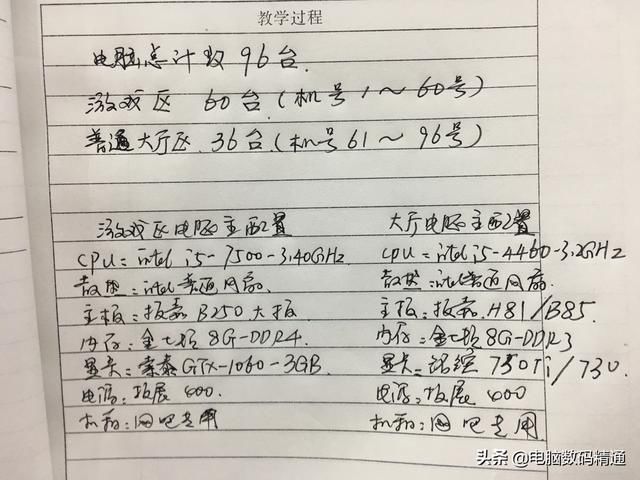 教学过程
电脑总计数 96台.
游戏区 60台(机号1~60号)
普通大厅区.36台.(机号61~96号)
游戏区电脑主配置
CPU=intel i5-7500-3.40GHz
散热:intel普通风扇.
主板:技嘉B250大板
内存:金士顿8G-DDR4.
显卡:索泰GTX-1060-3GB.
电源:航嘉 400.
机箱:网吧专用
大厅电脑主配置
CPU=intel i5-4460-3.2GHz
散热:intel普通风扇.
主板:技嘉.H81/B85.
内存:金士顿8G-DDR3
显卡:铭瑄750Ti/730.
电源:航嘉 400
机箱:网吧专用.
头条@电脑数码精通